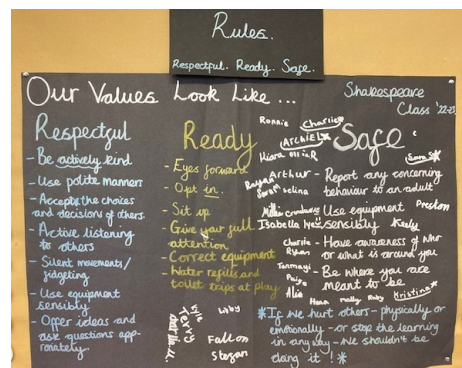 Rules.
Respectful. Ready. Safe.
Our Values Look Like ...
Shakespeare
Class '22-23
Respectful
- Be actively kind
- Use polite manners
- Accept the choices
and decisions of others
- Active listening
to others
- Silent movements/
fidgeting
- Use equipment
sensibly
- Offer ideas and
ask questions app-
ropriately
Ready
- Eyes forward
- Opt in.
- Sit up
- Give your full
attention
- Correct equipment
- Water refills and
toilet trips at play
Safe
- Report any concerning
behaviour to an adult
- Use equipment
sensibly
- Have awareness of who
or what is around you
- Be where you are
meant to be
*If we hurt others - physically or
emotionally - or stop the learning
in any way - we shouldn't be
doing it! *
Ronnie
Charlie
ARCHIE
Kiara
Arthur
Preston
Isabella
Keely
Charlie
Ryan
Paige
Alia
Ruby
Kristina
Fallon